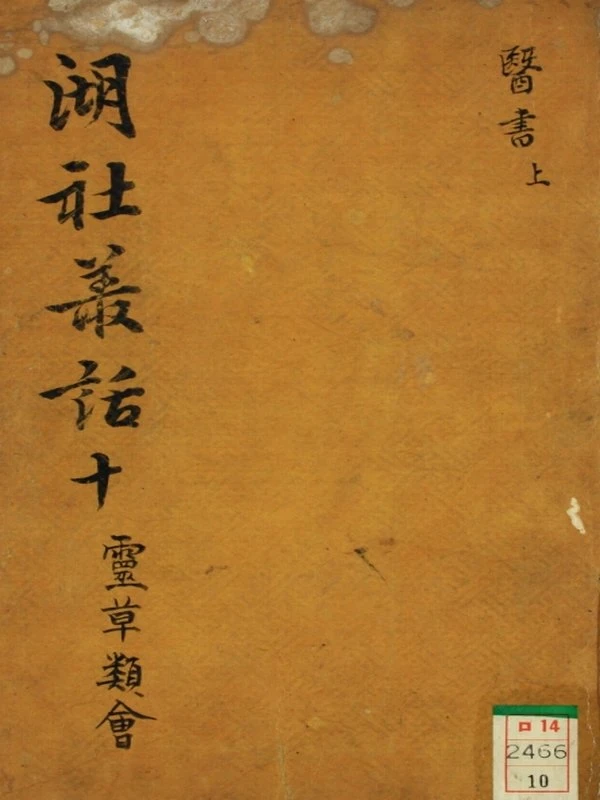 醫書 上
湖社叢話 十
靈草類會
ロ 14
2466
10